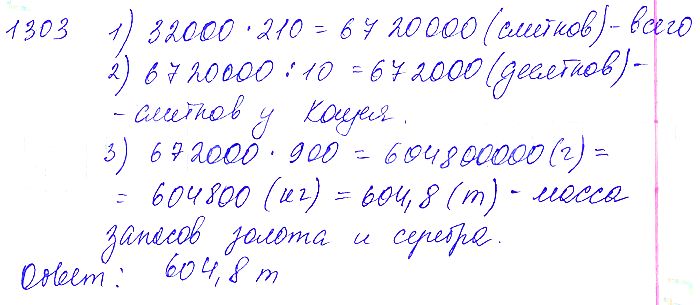 1303 1) 32000 · 210 = 6720000 (слитков) - всего
2) 6720000 : 10 = 672000 (десятков) -
- слитков у Кощея.
3) 672000 · 900 = 604800000 (г) =
= 604800 (кг) = 604,8 (т) - масса
запасов золота и серебра.
Ответ: 604,8 т